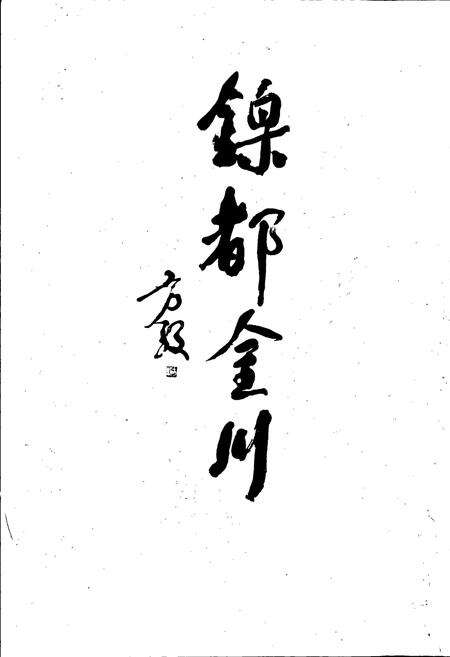 鎳都金川
方毅